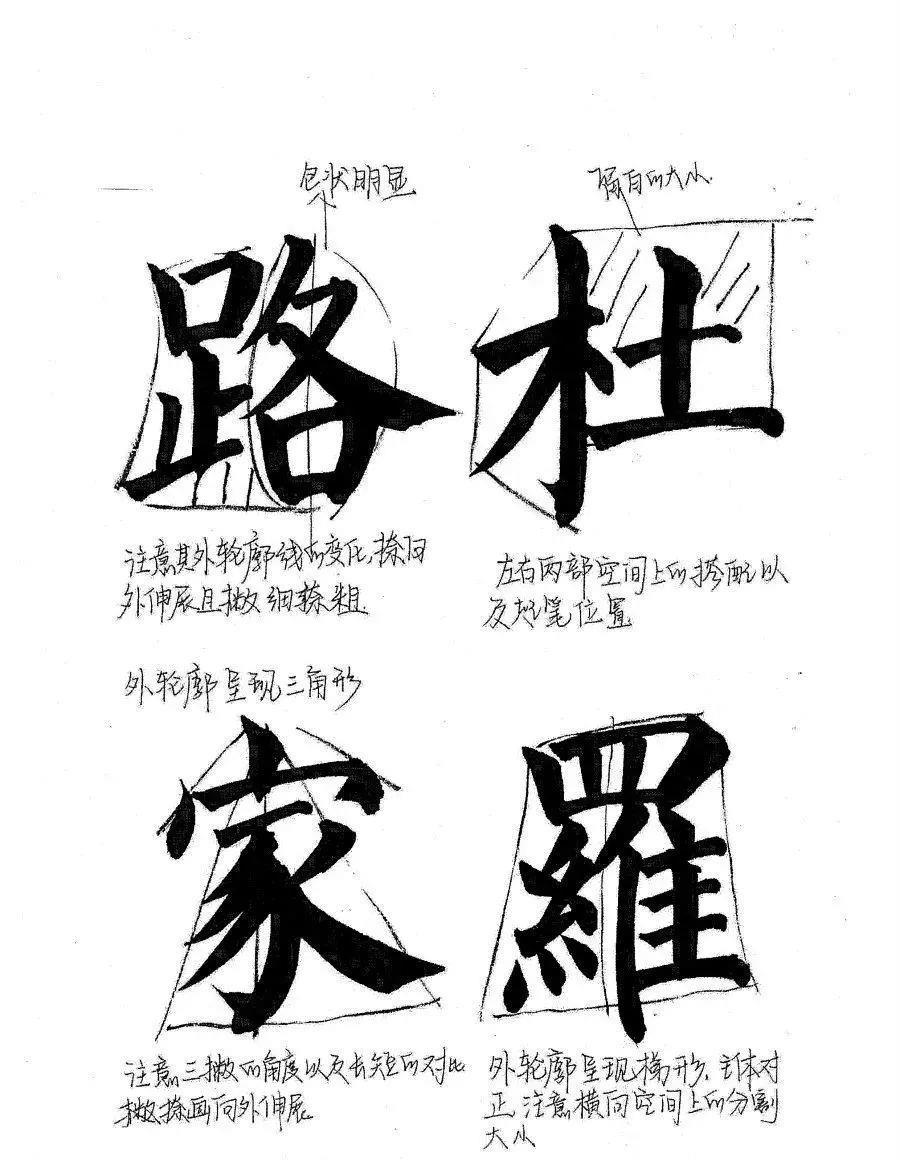 包状明显
留白的大小
路
杜
注意其外轮廓线的变化,捺向
外伸展且撇细捺粗.
左右两部空间上的搭配以
及起笔位置
外轮廓呈现三角形
家
羅
注意三撇的角度以及长短的对比
撇捺画向外伸展
外轮廓呈现梯形.主体对
正,注意横向空间上的分割
大小